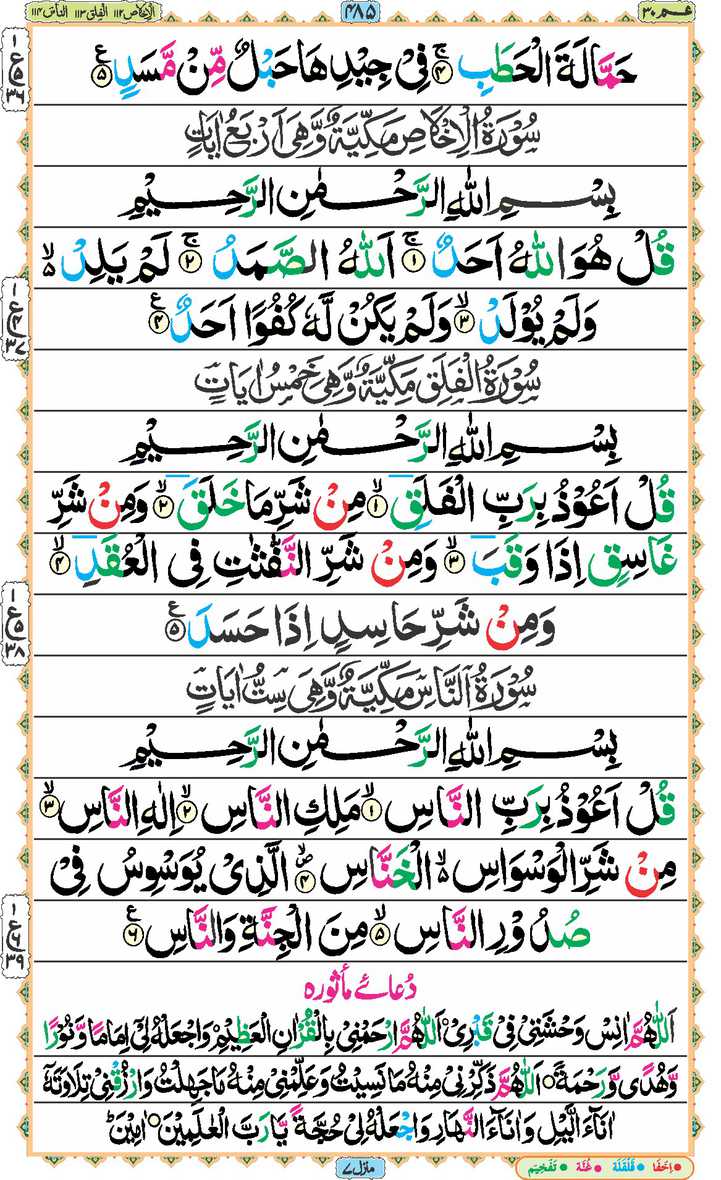 عـمّ ٣٠
٤٨٥
الاخلاص ١١٢ الفلق ١١٣ الناس ١١٤
حَمَّالَةَ الْحَطَبِ ۚ﴿۴﴾ فِیْ جِیْدِهَا حَبْلٌ مِّنْ مَّسَدٍ ﴿۵﴾ ع
١ ع ٥ ٣٦
سُوْرَةُ الْاِخْلَاصِ مَكِّیَّةٌ وَّهِیَ اَرْبَعُ اٰیَاتٍ
بِسْمِ اللّٰهِ الرَّحْمٰنِ الرَّحِیْمِ
قُلْ هُوَ اللّٰهُ اَحَدٌ ۚ﴿۱﴾ اَللّٰهُ الصَّمَدُ ۚ﴿۲﴾ لَمْ یَلِدْ ۙ۬
وَلَمْ یُوْلَدْ ۙ﴿۳﴾ وَلَمْ یَكُنْ لَّهٗ كُفُوًا اَحَدٌ ﴿۴﴾ ع
١ ع ٤ ٣٧
سُوْرَةُ الْفَلَقِ مَكِّیَّةٌ وَّهِیَ خَمْسُ اٰیَاتٍ
بِسْمِ اللّٰهِ الرَّحْمٰنِ الرَّحِیْمِ
قُلْ اَعُوْذُ بِرَبِّ الْفَلَقِ ۙ﴿۱﴾ مِنْ شَرِّ مَا خَلَقَ ۙ﴿۲﴾ وَمِنْ شَرِّ
غَاسِقٍ اِذَا وَقَبَ ۙ﴿۳﴾ وَمِنْ شَرِّ النَّفّٰثٰتِ فِی الْعُقَدِ ۙ﴿۴﴾
وَمِنْ شَرِّ حَاسِدٍ اِذَا حَسَدَ ﴿۵﴾ ع
١ ع ٥ ٣٨
سُوْرَةُ النَّاسِ مَكِّیَّةٌ وَّهِیَ سِتُّ اٰیَاتٍ
بِسْمِ اللّٰهِ الرَّحْمٰنِ الرَّحِیْمِ
قُلْ اَعُوْذُ بِرَبِّ النَّاسِ ۙ﴿۱﴾ مَلِكِ النَّاسِ ۙ﴿۲﴾ اِلٰهِ النَّاسِ ۙ﴿۳﴾
مِنْ شَرِّ الْوَسْوَاسِ ۙ۬ الْخَنَّاسِ ۪ۙ﴿۴﴾ الَّذِیْ یُوَسْوِسُ فِیْ
صُدُوْرِ النَّاسِ ۙ﴿۵﴾ مِنَ الْجِنَّةِ وَالنَّاسِ ﴿۶﴾ ع
١ ع ٦ ٣٩
دُعائے ماثورہ
اَللّٰهُمَّ اٰنِسْ وَحْشَتِیْ فِیْ قَبْرِیْ اَللّٰهُمَّ ارْحَمْنِیْ بِالْقُرْاٰنِ الْعَظِیْمِ وَاجْعَلْهُ لِیْ اِمَامًا وَّنُوْرًا
وَّهُدًی وَّرَحْمَةً اَللّٰهُمَّ ذَكِّرْنِیْ مِنْهُ مَا نَسِیْتُ وَعَلِّمْنِیْ مِنْهُ مَا جَهِلْتُ وَارْزُقْنِیْ تِلَاوَتَهٗ
اٰنَآءَ الَّیْلِ وَاٰنَآءَ النَّهَارِ وَاجْعَلْهُ لِیْ حُجَّةً یَّا رَبَّ الْعٰلَمِیْنَ اٰمِیْنَ
منزل ٧
اِخْفَا قَلْقَلَة غُنَّة تَفْخِیْم